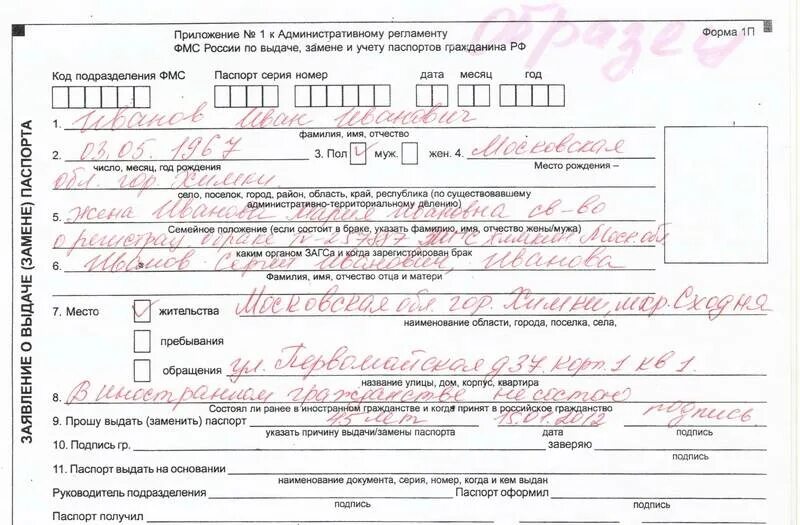 образец
Приложение № 1 к Административному регламенту
ФМС России по выдаче, замене и учету паспортов гражданина РФ
Форма 1П
ЗАЯВЛЕНИЕ О ВЫДАЧЕ (ЗАМЕНЕ) ПАСПОРТА
Код подразделения ФМС Паспорт серия номер дата месяц год
1. Иванов Иван Иванович
фамилия, имя, отчество
2. 03.05.1967 3. Пол ✓ муж. жен. 4. Московская
число, месяц, год рождения Место рождения –
обл. гор. Химки
село, поселок, город, район, область, край, республика (по существовавшему
административно-территориальному делению)
5. жена Иванова Мария Ивановна св-во
Семейное положение (если состоит в браке, указать фамилию, имя, отчество жены/мужа)
о регистрац браке Химки Моск. обл
каким органом ЗАГСа и когда зарегистрирован брак
6. Иванов Сергей Иванович, Иванова
Фамилия, имя, отчество отца и матери
7. Место ✓ жительства Московская обл. гор. Химки, мкр. Сходня
наименование области, города, поселка, села,
пребывания
обращения ул. Первомайская д 37 корп. 1 кв 1.
название улицы, дом, корпус, квартира
8. В иностранном гражданстве не состою
Состоял ли ранее в иностранном гражданстве и когда принят в российское гражданство
9. Прошу выдать (заменить) паспорт 45 лет 15.01.2012 подпись
указать причину выдачи/замены паспорта дата подпись
10. Подпись гр. заверяю
подпись
11. Паспорт выдать на основании
наименование документа, серия, номер, когда и кем выдан
Руководитель подразделения Паспорт оформил
подпись подпись
Паспорт получил